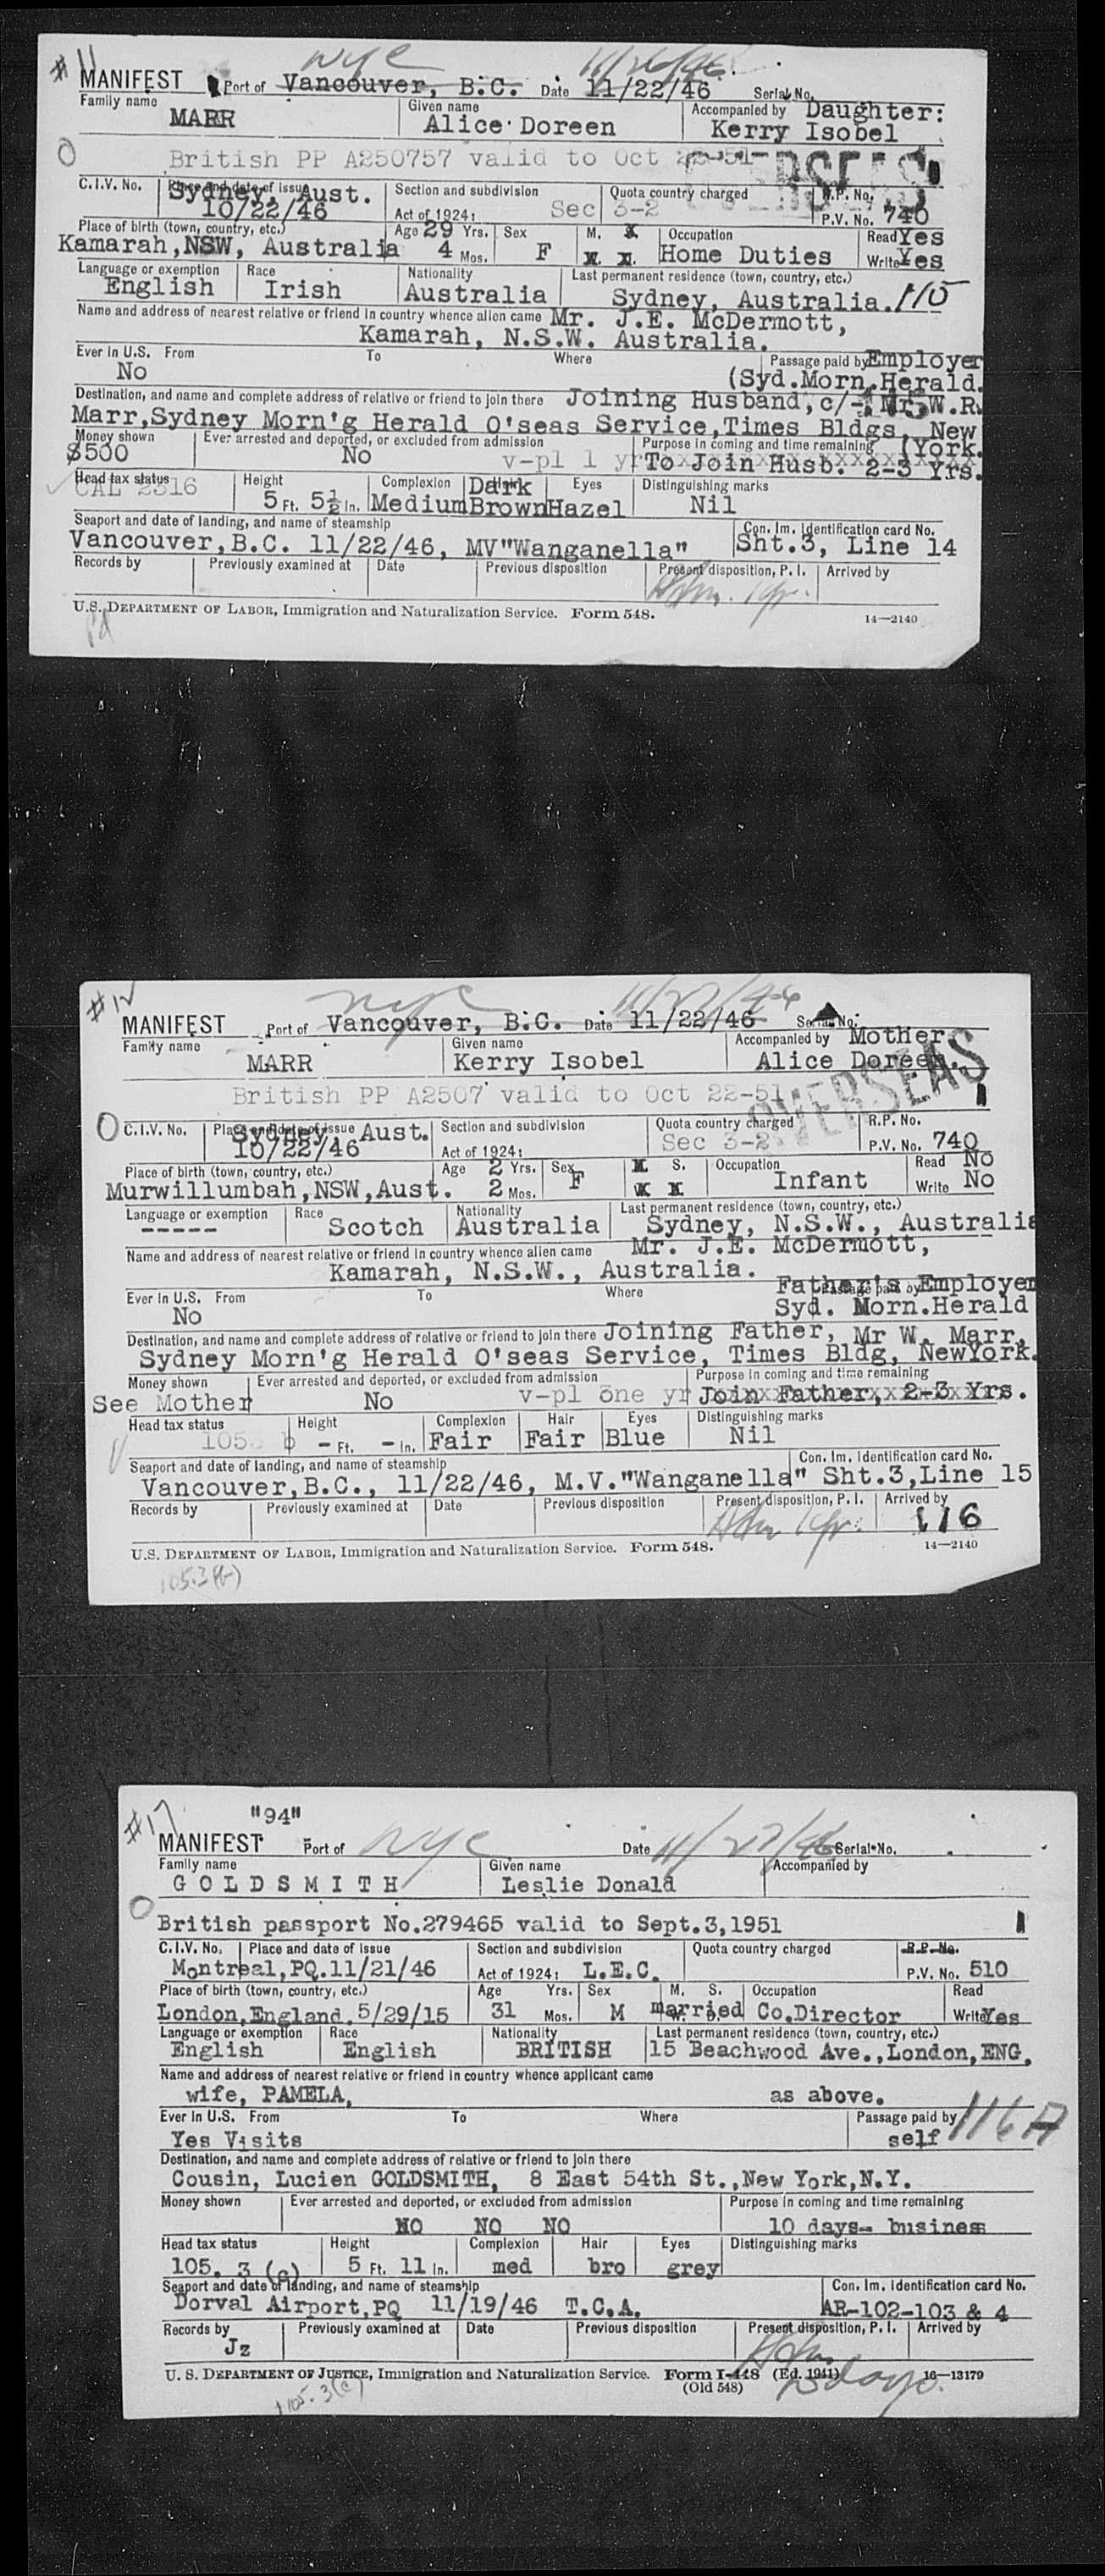 # 11 nyc 11/26/46.
MANIFEST Port of Vancouver, B.C. Date 11/22/46 Serial No.
Family name Given name Accompanied by Daughter:
MARR Alice Doreen Kerry Isobel
British PP A250757 valid to Oct OVERSEAS
C.I.V. No. Place and date of issue Section and subdivision Quota country charged R.P. No.
Sydney, Aust.
10/22/46 Act of 1924: Sec 3-2 P.V. No. 740
Place of birth (town, country, etc.) Age 29 Yrs. Sex M. X Occupation Read Yes
Kamarah, NSW, Australia 4 Mos. F X. X. Home Duties Write Yes
Language or exemption Race Nationality Last permanent residence (town, country, etc.)
English Irish Australia Sydney, Australia. 115
Name and address of nearest relative or friend in country whence alien came Mr. J.E. McDermott,
Kamarah, N.S.W. Australia.
Ever in U.S. From To Where Passage paid by Employer
No (Syd.Morn.Herald.
Destination, and name and complete address of relative or friend to join there Joining Husband, c/- Mr W.R.
Marr, Sydney Morn'g Herald O'seas Service, Times Bldgs, New
Money shown Ever arrested and deported, or excluded from admission Purpose in coming and time remaining (York.
$500 No v-pl 1 yr To Join Husb. 2-3 Yrs.
Head tax status Height Complexion Hair Dark Eyes Distinguishing marks
CAL 2316 5 Ft. 5½ In. Medium Brown Hazel Nil
Seaport and date of landing, and name of steamship Con. Im. Identification card No.
Vancouver, B.C. 11/22/46, MV "Wanganella" Sht.3, Line 14
Records by Previously examined at Date Previous disposition Present disposition, P. I. Arrived by
Adm. 1yr.
U.S. DEPARTMENT OF LABOR, Immigration and Naturalization Service. Form 548. 14—2140
Pd
#12 nyc 11/27/46
MANIFEST Port of Vancouver, B.C. Date 11/22/46 Serial No.
Family name Given name Accompanied by Mother
MARR Kerry Isobel Alice Doreen.
British PP A2507 valid to Oct 22-51 OVERSEAS
C.I.V. No. Place and date of issue Section and subdivision Quota country charged R.P. No.
Sydney Aust.
10/22/46 Act of 1924: Sec 3-2 P.V. No. 740
Place of birth (town, country, etc.) Age 2 Yrs. Sex X S. Occupation Read No
Murwillumbah, NSW, Aust. 2 Mos. F X X Infant Write No
Language or exemption Race Nationality Last permanent residence (town, country, etc.)
----- Scotch Australia Sydney, N.S.W., Australia
Name and address of nearest relative or friend in country whence alien came Mr. J.E. McDermott,
Kamarah, N.S.W., Australia.
Ever in U.S. From To Where Passage paid by Father's Employer
No Syd. Morn.Herald
Destination, and name and complete address of relative or friend to join there Joining Father, Mr W. Marr,
Sydney Morn'g Herald O'seas Service, Times Bldg, NewYork.
Money shown Ever arrested and deported, or excluded from admission Purpose in coming and time remaining
See Mother No v-pl one yr Join Father, 2-3 Yrs.
Head tax status Height Complexion Hair Eyes Distinguishing marks
105. b - Ft. - In. Fair Fair Blue Nil
Seaport and date of landing, and name of steamship Con. Im. Identification card No.
Vancouver, B.C., 11/22/46, M.V."Wanganella" Sht.3, Line 15
Records by Previously examined at Date Previous disposition Present disposition, P. I. Arrived by
Adm 1yr. 116
U.S. DEPARTMENT OF LABOR, Immigration and Naturalization Service. Form 548. 14—2140
105.3(b)
#17 "94"
MANIFEST Port of nyc Date 11/27/46 Serial No.
Family name Given name Accompanied by
GOLDSMITH Leslie Donald
British passport No.279465 valid to Sept.3,1951
C.I.V. No. Place and date of issue Section and subdivision Quota country charged R.P. No.
Montreal, PQ. 11/21/46 Act of 1924: L.E.C. P.V. No. 510
Place of birth (town, country, etc.) Age Yrs. Sex M. S. Occupation Read
London, England, 5/29/15 31 Mos. M married Co.Director Write Yes
Language or exemption Race Nationality Last permanent residence (town, country, etc.)
English English BRITISH 15 Beachwood Ave., London, ENG.
Name and address of nearest relative or friend in country whence applicant came
wife, PAMELA, as above.
Ever in U.S. From To Where Passage paid by 116A
Yes Visits self
Destination, and name and complete address of relative or friend to join there
Cousin, Lucien GOLDSMITH, 8 East 54th St., New York, N.Y.
Money shown Ever arrested and deported, or excluded from admission Purpose in coming and time remaining
NO NO NO 10 days- business
Head tax status Height Complexion Hair Eyes Distinguishing marks
105. 3 (c) 5 Ft. 11 In. med bro grey
Seaport and date of landing, and name of steamship Con. Im. Identification card No.
Dorval Airport, PQ 11/19/46 T.C.A. AR-102-103 & 4
Records by Previously examined at Date Previous disposition Present disposition, P. I. Arrived by
Jz Adm
U. S. DEPARTMENT OF JUSTICE, Immigration and Naturalization Service. Form I-448 (Ed. 1941) days. 16—13179
(Old 548)
105.3(c)